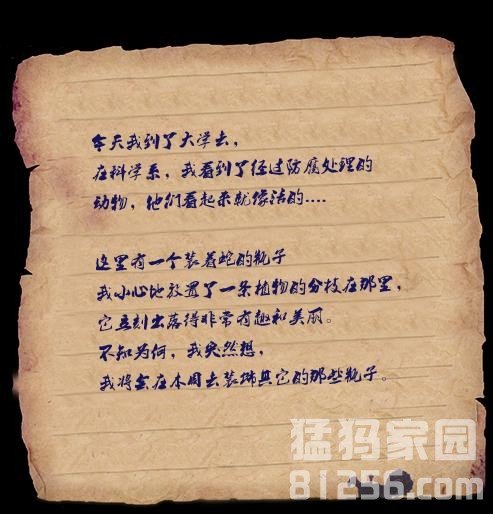 今天我到了大学去，
在科学系，我看到了经过防腐处理的
动物，他们看起来就像活的....
这里有一个装着蛇的瓶子
我小心地放置了一条植物的分枝在那里，
它立刻出落得非常有趣和美丽。
不知为何，我突然想，
我将会在本周去装饰其它的那些瓶子。
猛犸家园
81256.com